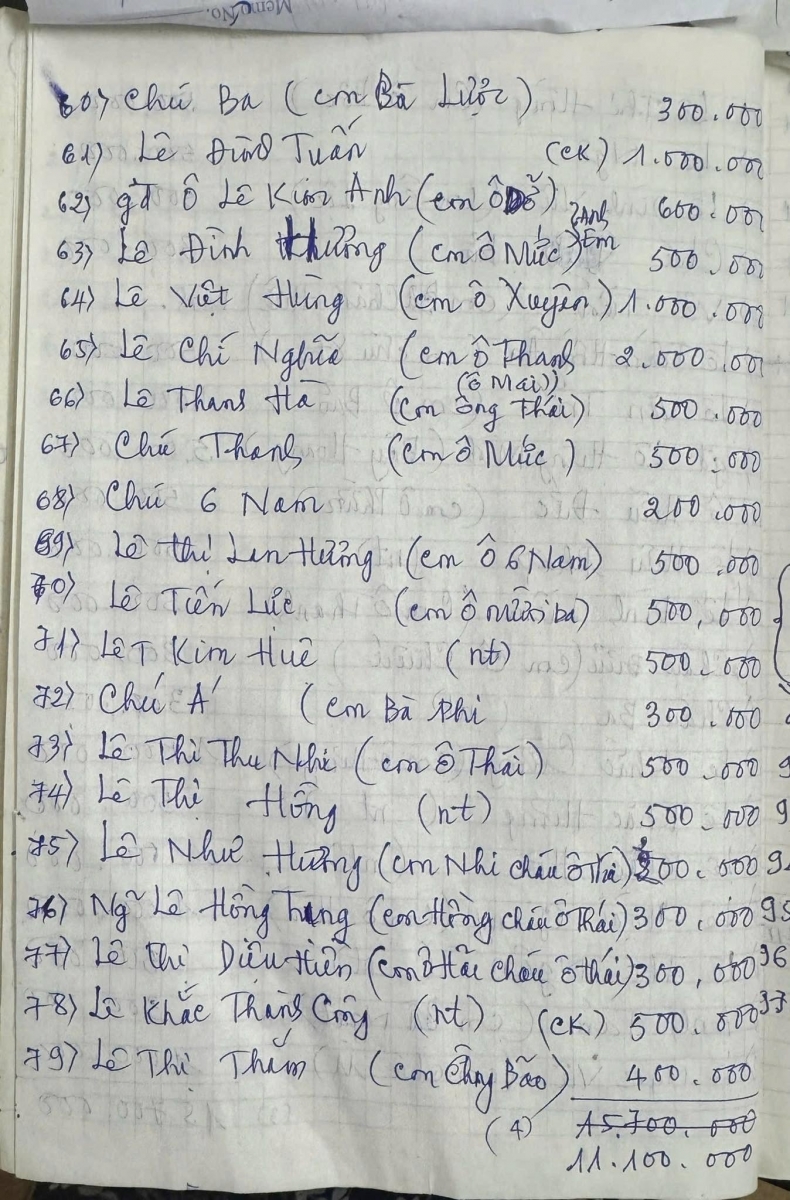 Memo No.
60) Chú Ba (con Bà Lược) 300.000
61) Lê Đình Tuấn (CK) 1.000.000
62) gđ Ô Lê Kim Anh (con Ô Dỗ) 600.000
63) Lê Đình Hường (con Ô Mức) 2 Anh Em 500.000
64) Lê Việt Hùng (con Ô Xuyên) 1.000.000
65) Lê Chí Nghĩa (con Ô Thanh 2.000.000
(Ô Mai))
66) Lê Thanh Hà (Con Ông Thái) 500.000
67) Chú Thanh (con Ô Mức) 500.000
68) Chú 6 Nam 200.000
69) Lê Thị Lan Hương (con Ô 6 Nam) 500.000
70) Lê Tiến Lực (con Ô mười ba) 500.000
71) Lê T Kim Huê (nt) 500.000
72) Chú Á (con Bà Phi 300.000
73) Lê Thị Thu Nhi (con Ô Thái) 500.000
74) Lê Thị Hồng (nt) 500.000
75) Lê Như Hương (con Nhi cháu Ô Thái) 200.000
76) Ng Lê Hồng Hưng (con Hồng cháu Ô Thái) 300.000 95
77) Lê Thị Diệu Hiền (con Ô Hải cháu Ô Thái) 300.000 96
78) Lê Khắc Thành Công (nt) (CK) 500.000 97
79) Lê Thị Thắm (con Ông Bão) 400.000
15.700.000
(4) 11.100.000